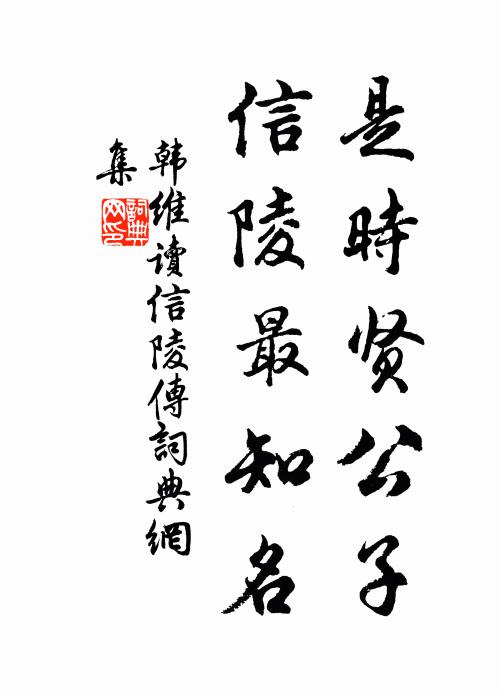 是時贤公子
信陵最知名
韩維讀信陵傳詞典網
集
詞典
网印